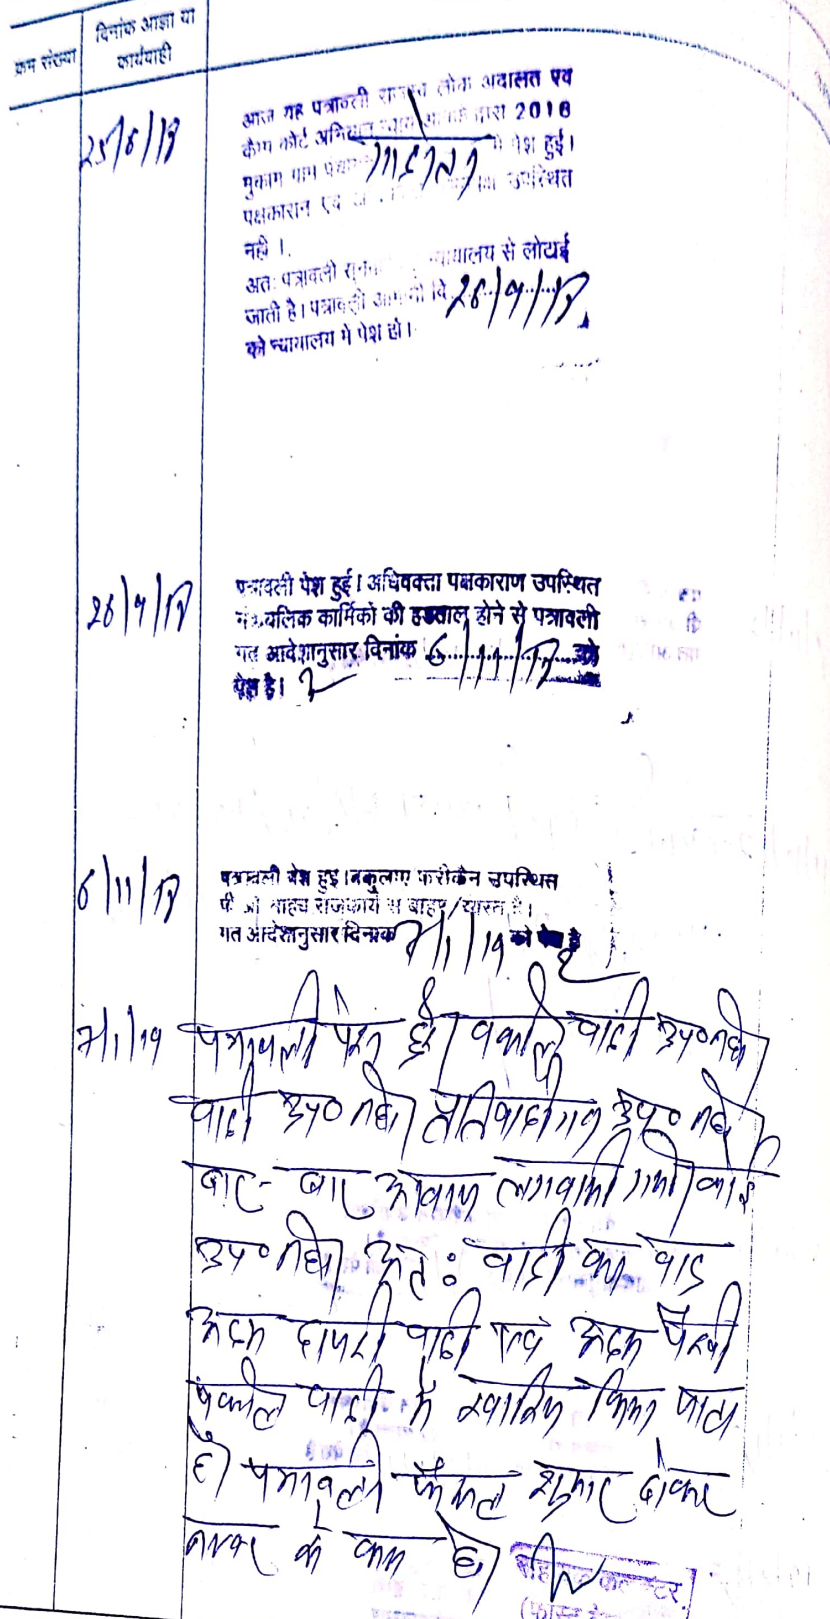 क्रम संख्या
दिनांक आज्ञा या
कार्यवाही
25/6/18
आज यह पत्रावली राजस्व लोक अदालत एवं
कैम्प कोर्ट अभियान न्याय आपके द्वारा 2018
मुकाम ग्राम पंचा में पेश हुई।
पक्षकारान एवं उपस्थित
नही ।
अतः पत्रावली न्यायालय से लोटाई
जाती है। पत्रावली आगामी दि 26/9/18
को न्यायालय मे पेश हो।
26/9/18
पत्रावली पेश हुई। अधिवक्ता पक्षकाराण उपस्थित
मंत्रालयिक कार्मिको की हडताल होने से पत्रावली
गत आदेशानुसार दिनांक 6/11/18 को
पेश है।
6/11/18
पत्रावली पेश हुई। वकुलाए फरीकेन उपस्थित
पी ओ साहब राजकार्य से बाहर/व्यस्त है।
गत आदेशानुसार दिनांक 7/1/19 को पेश है
7/1/19 पत्रावली पेश है। वकील वादी उप० नही।
वादी उप० नही। प्रतिवादीगण उप० नही।
बार-बार आवाज लगवायी गयी। कोई
उप० नही। अतः वादी का वाद
अदम हाजरी वादी एवं अदम पैरवी
वकील वादी में खारिज किया जाता
है। पत्रावली फैसल शुमार होकर
नम्बर से कम हो।
सहायक कलेक्टर
(फास्ट